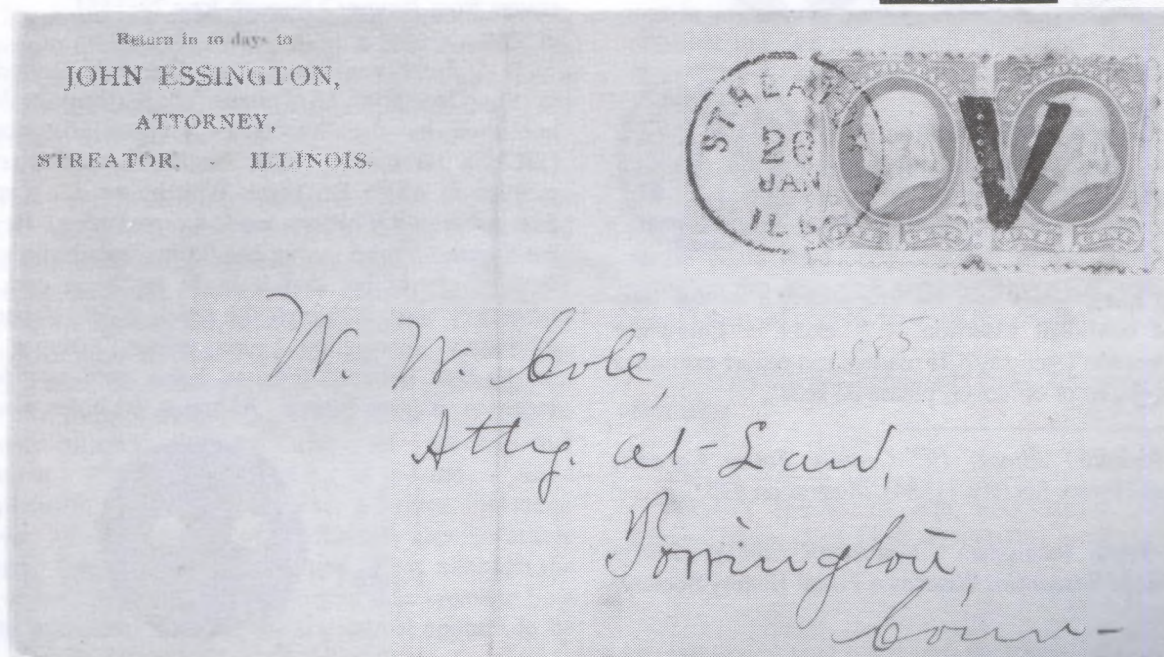 Return in 10 days to
JOHN ESSINGTON,
ATTORNEY,
STREATOR, - ILLINOIS.
STREATOR
26
JAN
ILL
V
W. W. Cole,
1885
Atty. at-Law,
Torrington,
Conn-